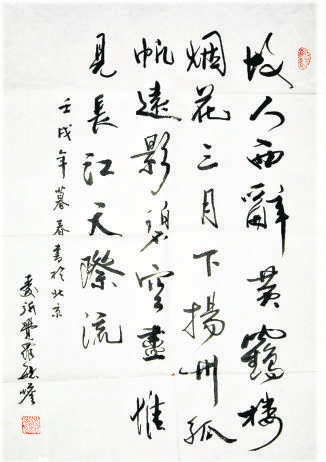 故人西辭黃鶴樓
烟花三月下揚州孤
帆遠影碧空盡惟
見長江天際流
壬戌年暮春書於北京
愛新覺羅毓嶦